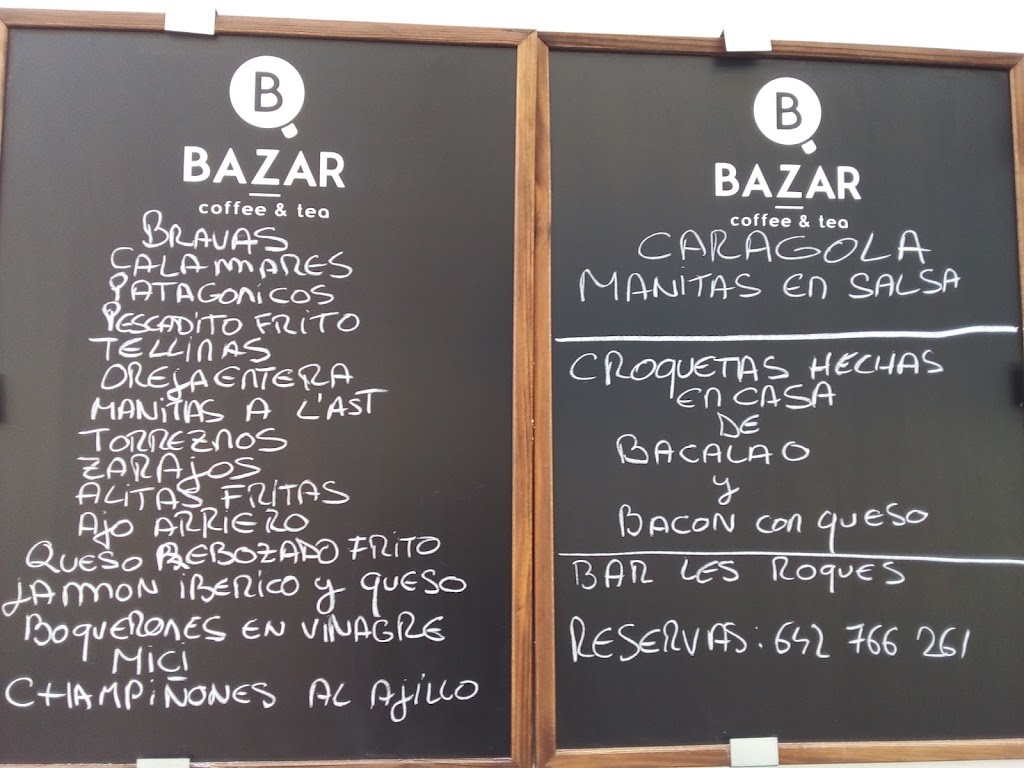 B
BAZAR
coffee & tea
BRAVAS
CALAMARES
PATAGONICOS
PESCADITO FRITO
TELLINAS
OREJA ENTERA
MANITAS A L'AST
TORREZNOS
ZARAJOS
ALITAS FRITAS
AJO ARRIERO
QUESO REBOZADO FRITO
JAMMON IBERICO y QUESO
BOQUERONES EN VINAGRE
MICI
CHAMPIÑONES AL AJILLO
B
BAZAR
coffee & tea
CARAGOLA
MANITAS EN SALSA
CROQUETAS HECHAS
EN CASA
DE
BACALAO
y
BACON CON QUESO
BAR LES ROQUES
RESERVAS: 642 766 261